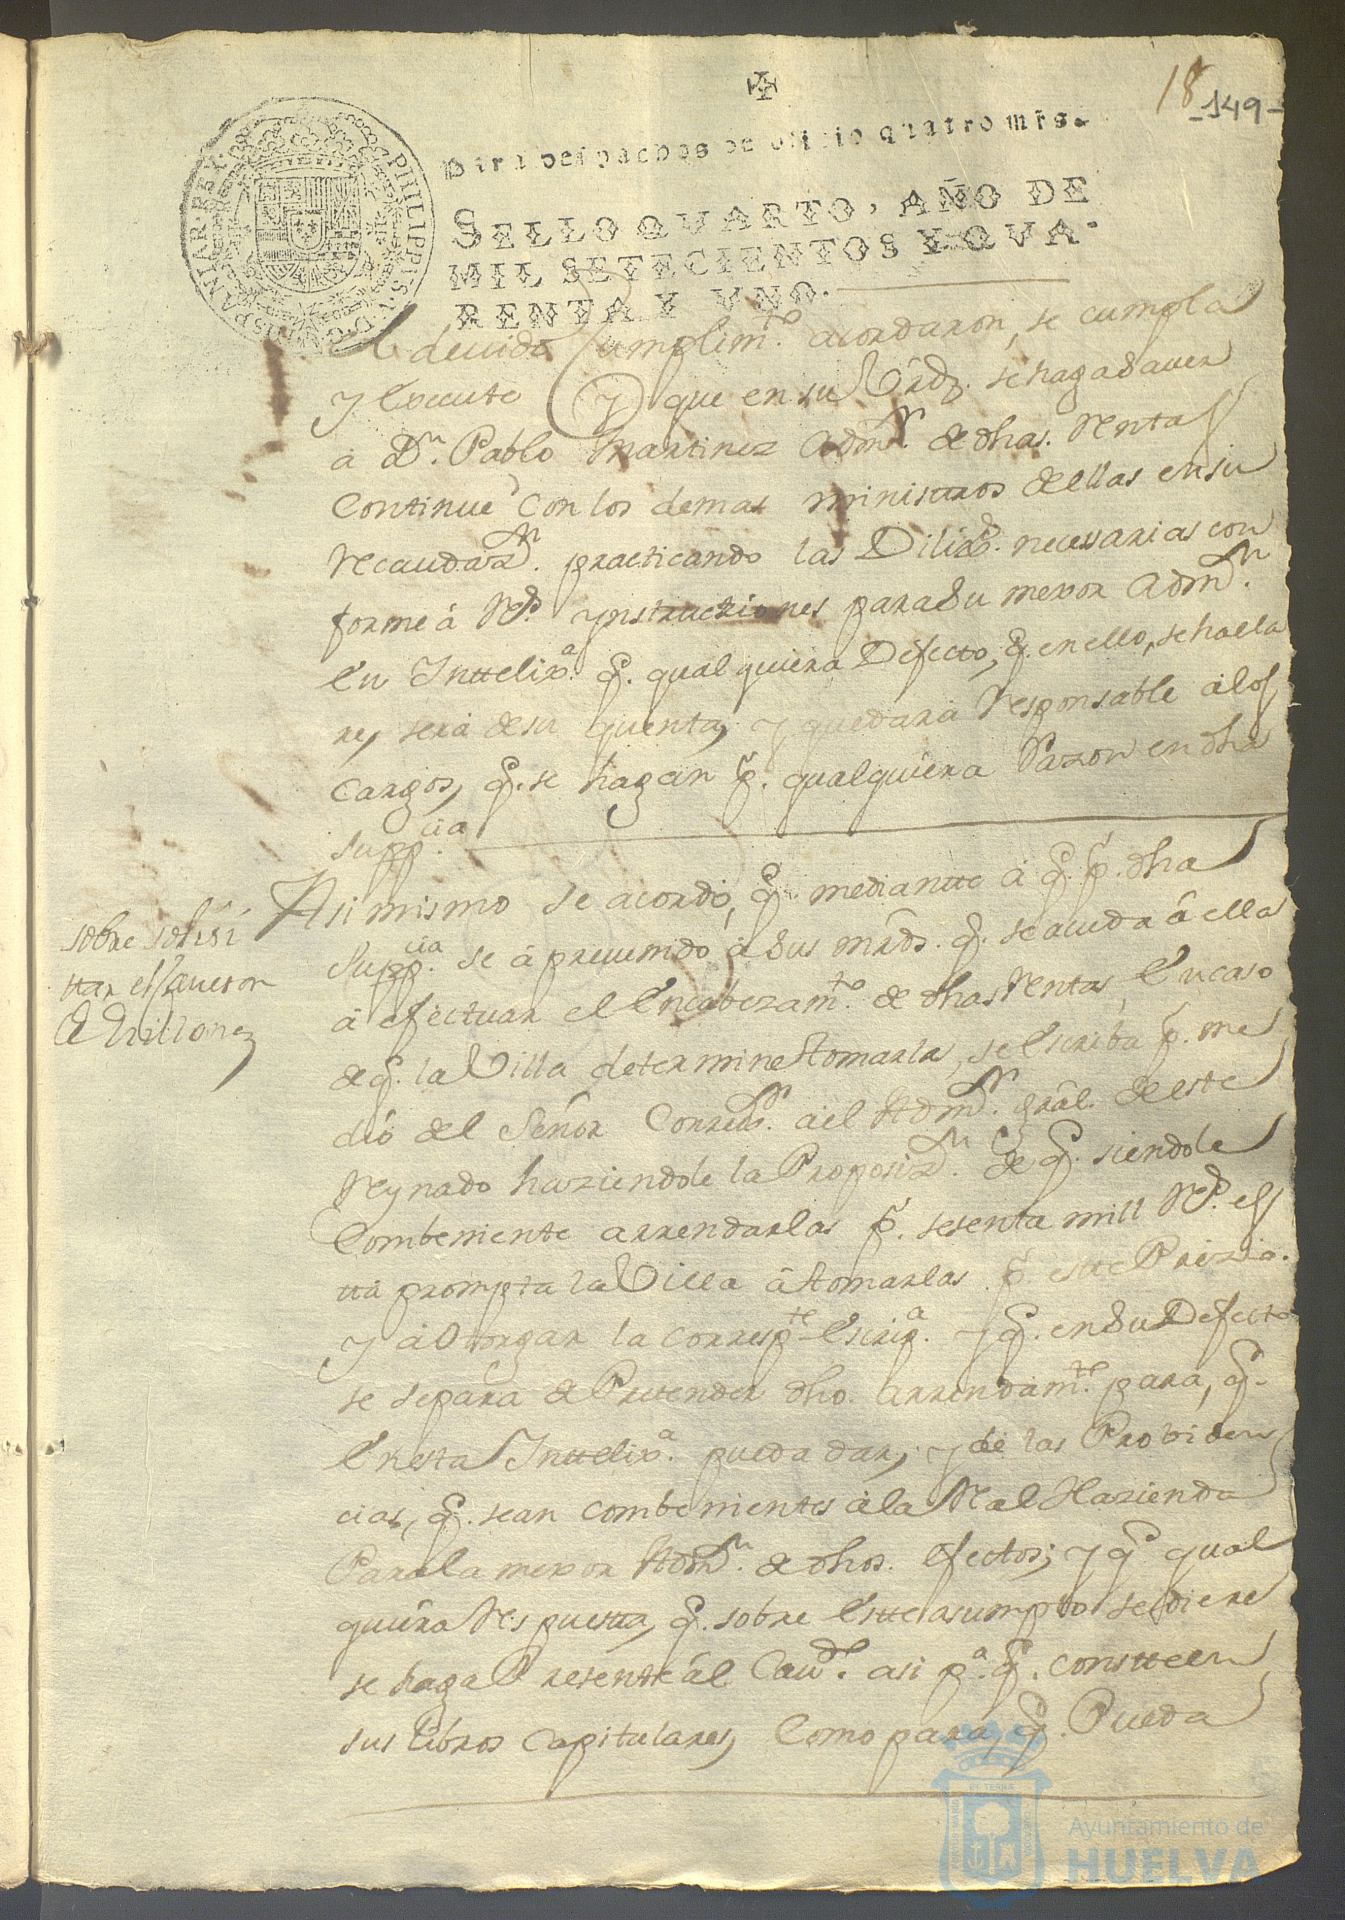 18
-149-
Para despachos de oficio quatro mrs.
SELLO QVARTO, AÑO DE
MIL SETECIENTOS Y QVA-
RENTA Y VNO.
PHILIPPUS V D G HISPANIAR REX
devido Cumplimto. acordaron, se cumpla
y execute y que en su Vrd. se haga saver
a Dn. Pablo Martinez Admr. de dhas. Rentas
Continue con los demas ministros dellas en su
recaudazn. practicando las Dilixs. necessarias con
forme á Rs. ynstrucziones para su mexor Admn.
En Inttelixa. q. qualquiera Defecto, q. en ello, se halla
re, será de su quenta, y quedará responsable á los
cargos, q. se hagan p. qualquiera razon en dha
Suppcia.
Asimismo se acordó, q. mediantte á q. p. dha
Suppcia. se á prevenido á sus mrds. q. se acuda á ella
á efectuar el Encabezamto. de dhas Rentas, En caso
de q. la Villa determine tomarla, se Escriba p. me
dio del Señor Corregr. a el Admr. gral. de este
Reynado haziendole la Proposizn. de q. siendole
Combeniente arrendarlas p. sesenta mill Rs. es
tta prompta la Villa á tomarlas p. estte Prezio.
y á Otorgar la correspte. Escripa. y q. en su Defecto
se separa de Prettender dho. arrendamto. para, q.
En esta Inttelixa. pueda dar, y dé las Probiden
cias, q. sean combenientes á la Real Hazienda
Para la mexor Admn. de dhos. efectos; y q. qual
quiera Respuestta, q. sobre Estte asumpto se diere
se haga Presente ál Cavdo. asi pa. q. constte en
sus libros Capitulares, Como para, q. Pueda
sobre solisi
ttar el
de Millones
Ayuntamiento de
HUELVA